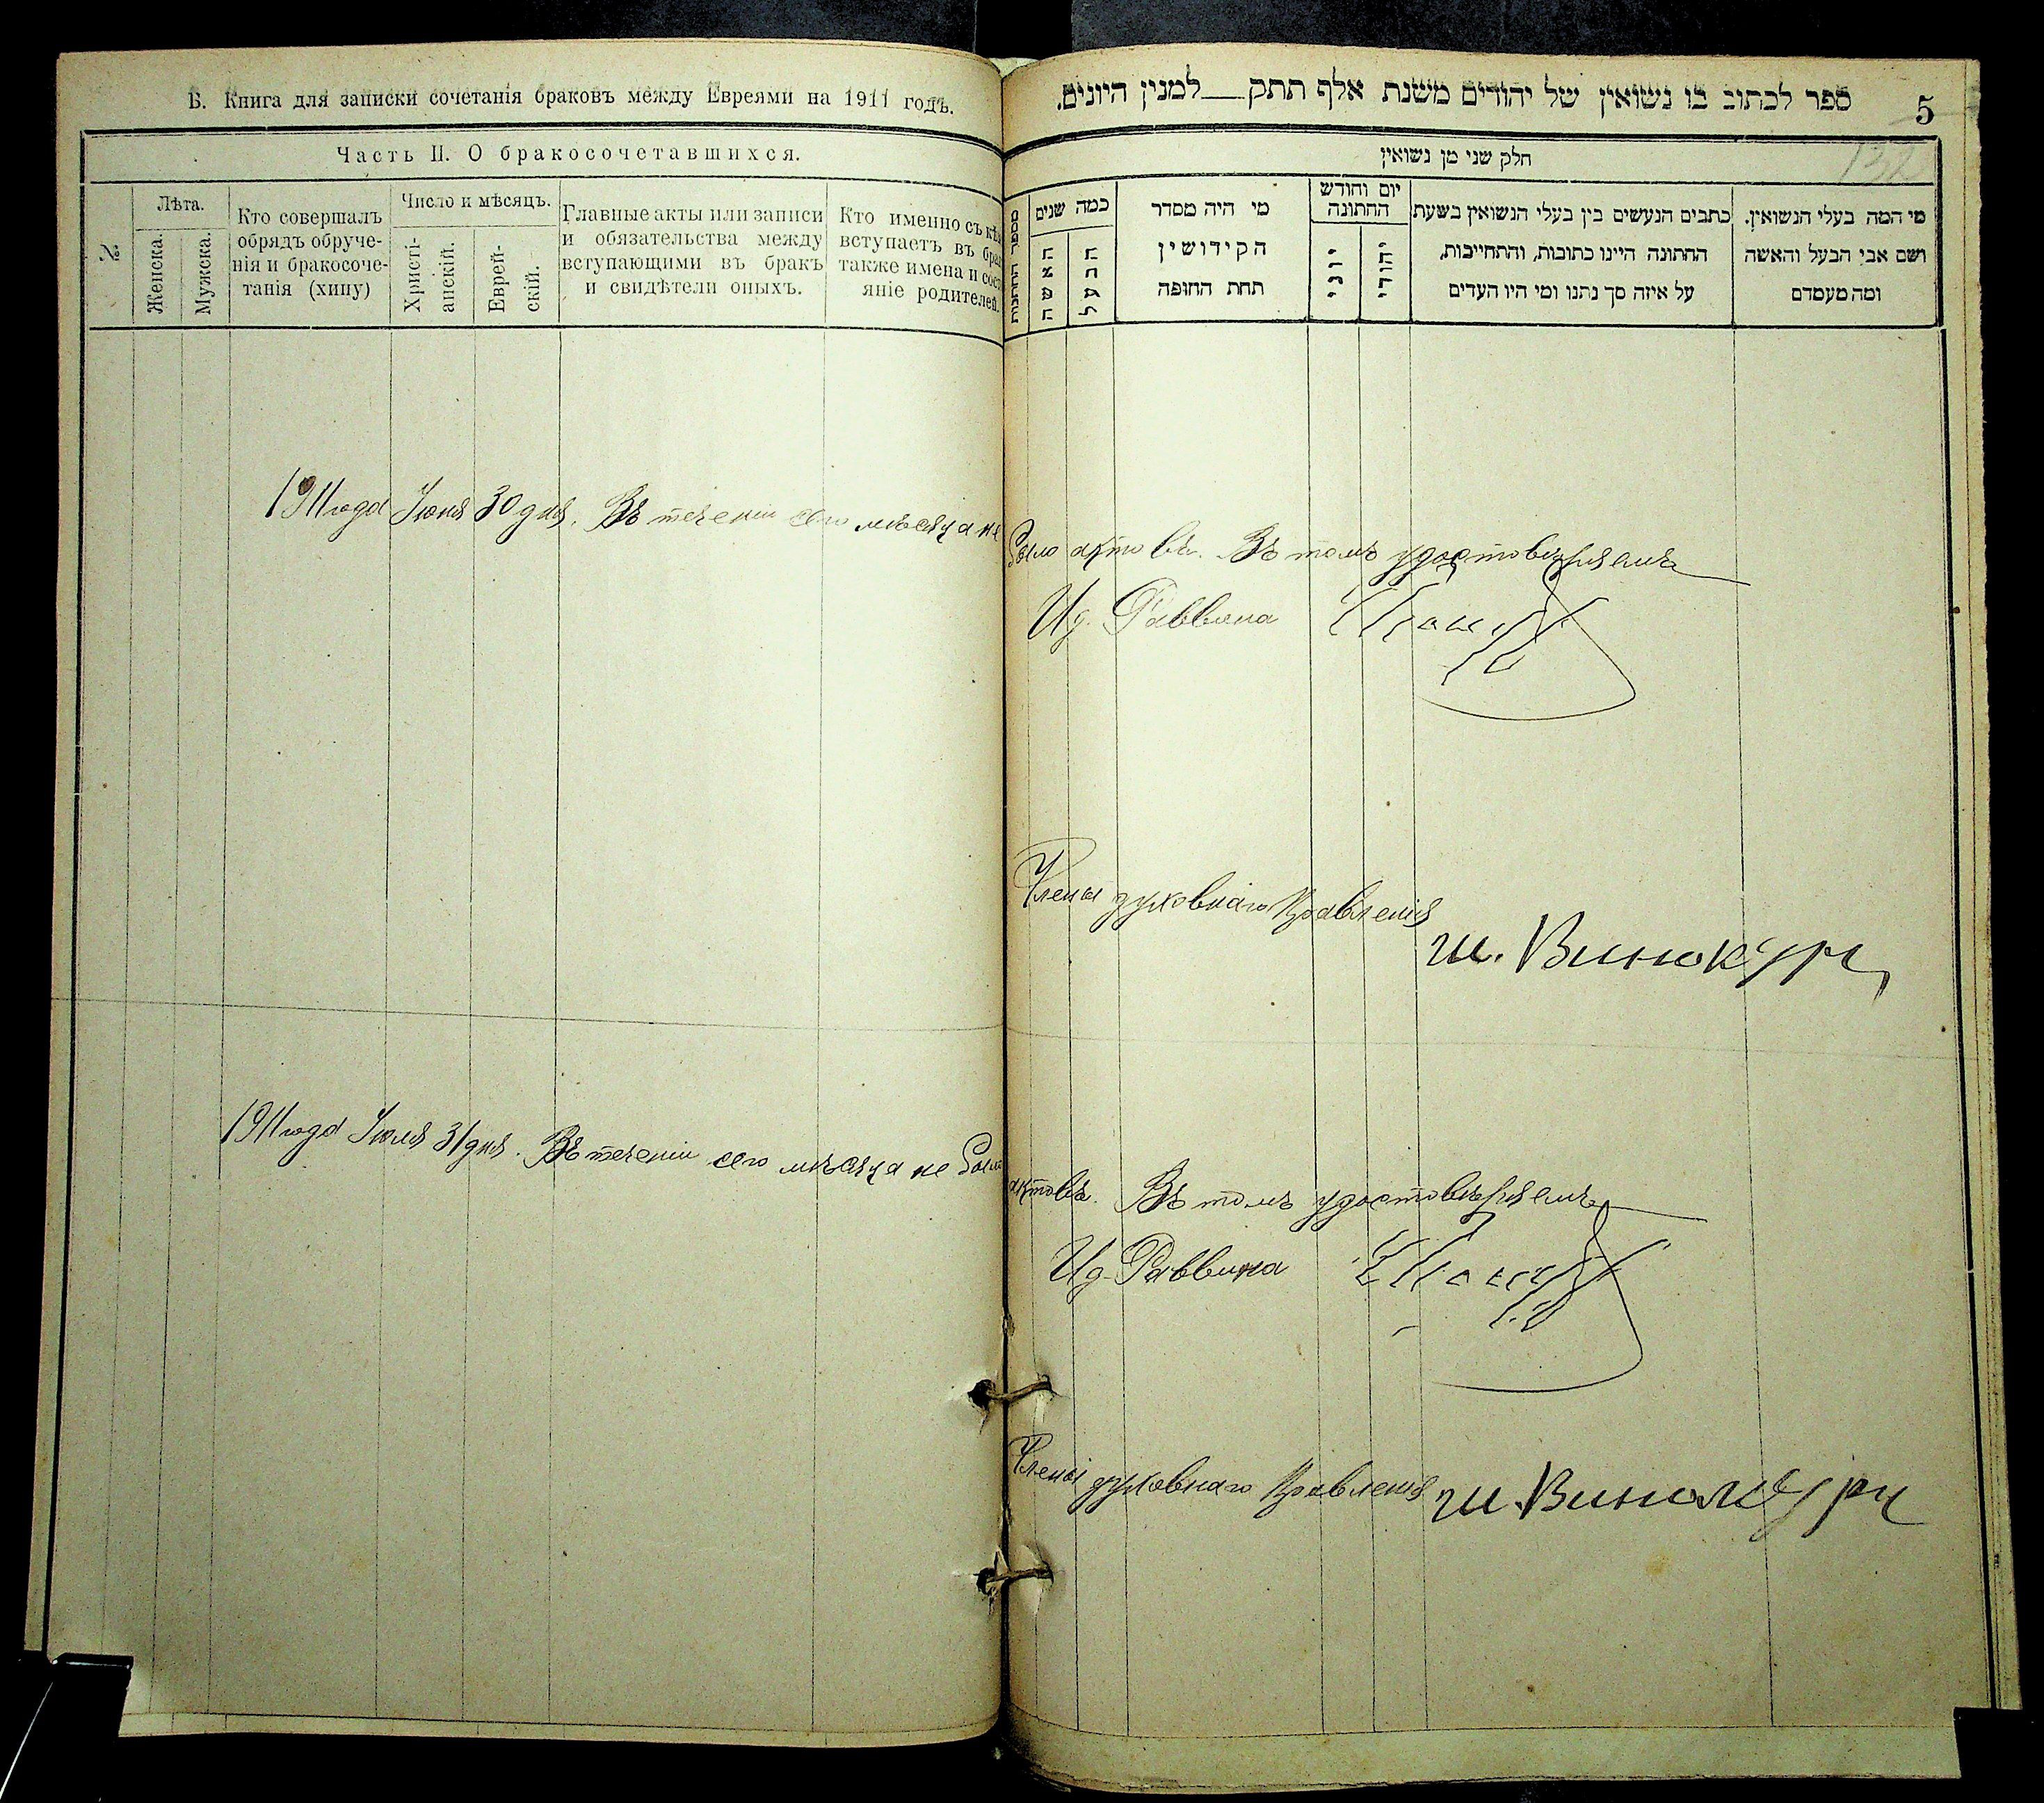 Б. Книга для записки сочетанія браковъ между Евреями на 1911 годъ.
Часть II. О бракосочетавшихся.
№
Лѣта.
Женска.
Мужска.
Кто совершалъ
обрядъ обруче-
нія и бракосоче-
танія (хипу)
Число и мѣсяцъ.
Христі-
анскій.
Еврей-
скій.
Главные акты или записи
и обязательства между
вступающими въ бракъ
и свидѣтели оныхъ.
Кто именно съ
вступаетъ въ
также имена и
яніе родителей.
1911 года Іюня 30 дня. Въ теченіи сего мѣсяца не
1911 года Іюля 31 дня. Въ теченіи сего мѣсяца не было
ספר לכתוב בו נשואין של יהודים משנת אלף תתק__למנין היונים.
5
132
חלק שני מן נשואין
מספר החתונות
כמה שנים
האשה
הבעל
מי היה מסדר
הקידושין
תחת החופה
יום וחודש
החתונה
יוני
יהודי
כתבים הנעשים בין בעלי הנשואין בשעת
החתונה היינו כתובות, והתחייבות,
על איזה סך נתנו ומי היו העדים
מי המה בעלי הנשואין.
ושם אבי הבעל והאשה
ומה מעמדם
было актовъ. Въ томъ удостовѣряемъ
И д. Раввина
Члены духовнаго Правленія
Ш. Винокуръ
актовъ. Въ томъ удостовѣряемъ
И д. Раввина
Члены духовнаго Правленія
Ш. Винокуръ